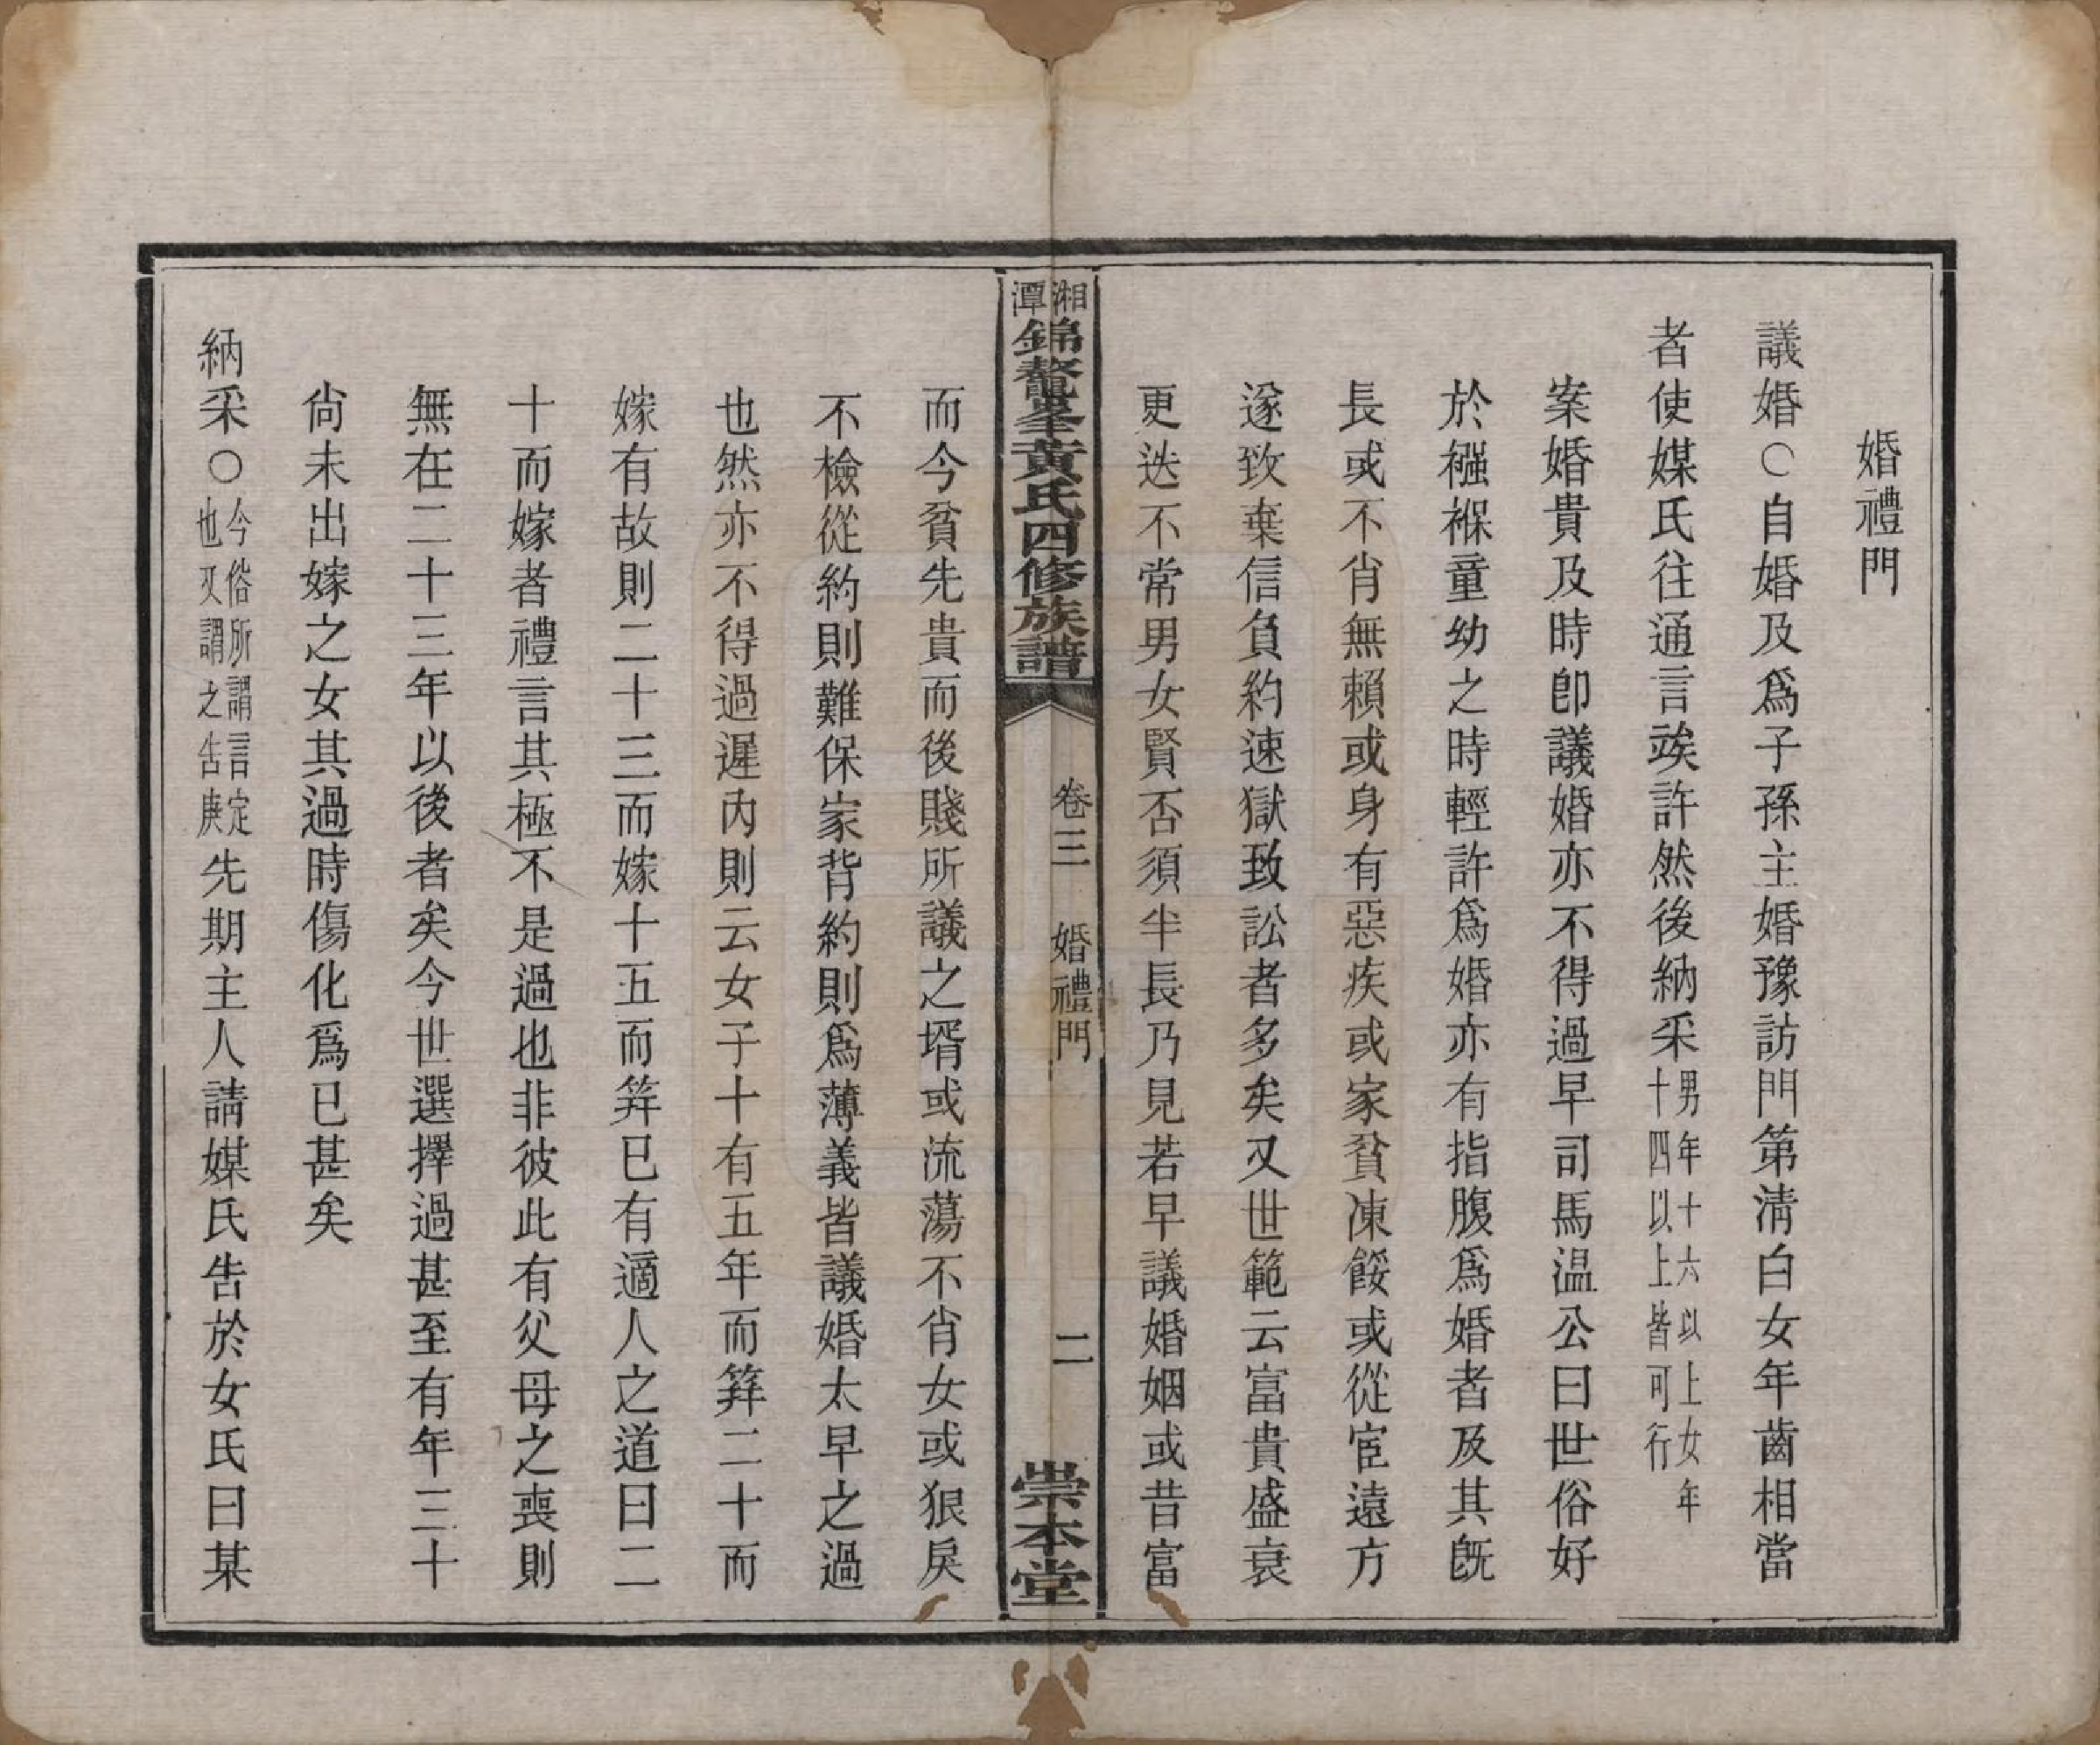 婚禮門
議婚○自婚及爲子孫主婚豫訪門第淸白女年齒相當
者使媒氏往通言竢許然後納采男年十六以上女年十四以上皆可行
案婚貴及時卽議婚亦不得過早司馬温公曰世俗好
於襁褓童幼之時輕許爲婚亦有指腹爲婚者及其旣
長或不肖無賴或身有惡疾或家貧凍餒或從宦遠方
遂致棄信負約速獄致訟者多矣又世範云富貴盛衰
更迭不常男女賢否須半長乃見若早議婚姻或昔富
湘潭錦鼇峯黃氏四修族譜 卷三 婚禮門 二 崇本堂
而今貧先貴而後賤所議之壻或流蕩不肖女或狠戾
不檢從約則難保家背約則爲薄義皆議婚太早之過
也然亦不得過遲內則云女子十有五年而筓二十而
嫁有故則二十三而嫁十五而筓已有適人之道曰二
十而嫁者禮言其極不是過也非彼此有父母之喪則
無在二十三年以後者矣今世選擇過甚至有年三十
尙未出嫁之女其過時傷化爲已甚矣
納采○今俗所謂言定也又謂之告庚先期主人請媒氏告於女氏曰某